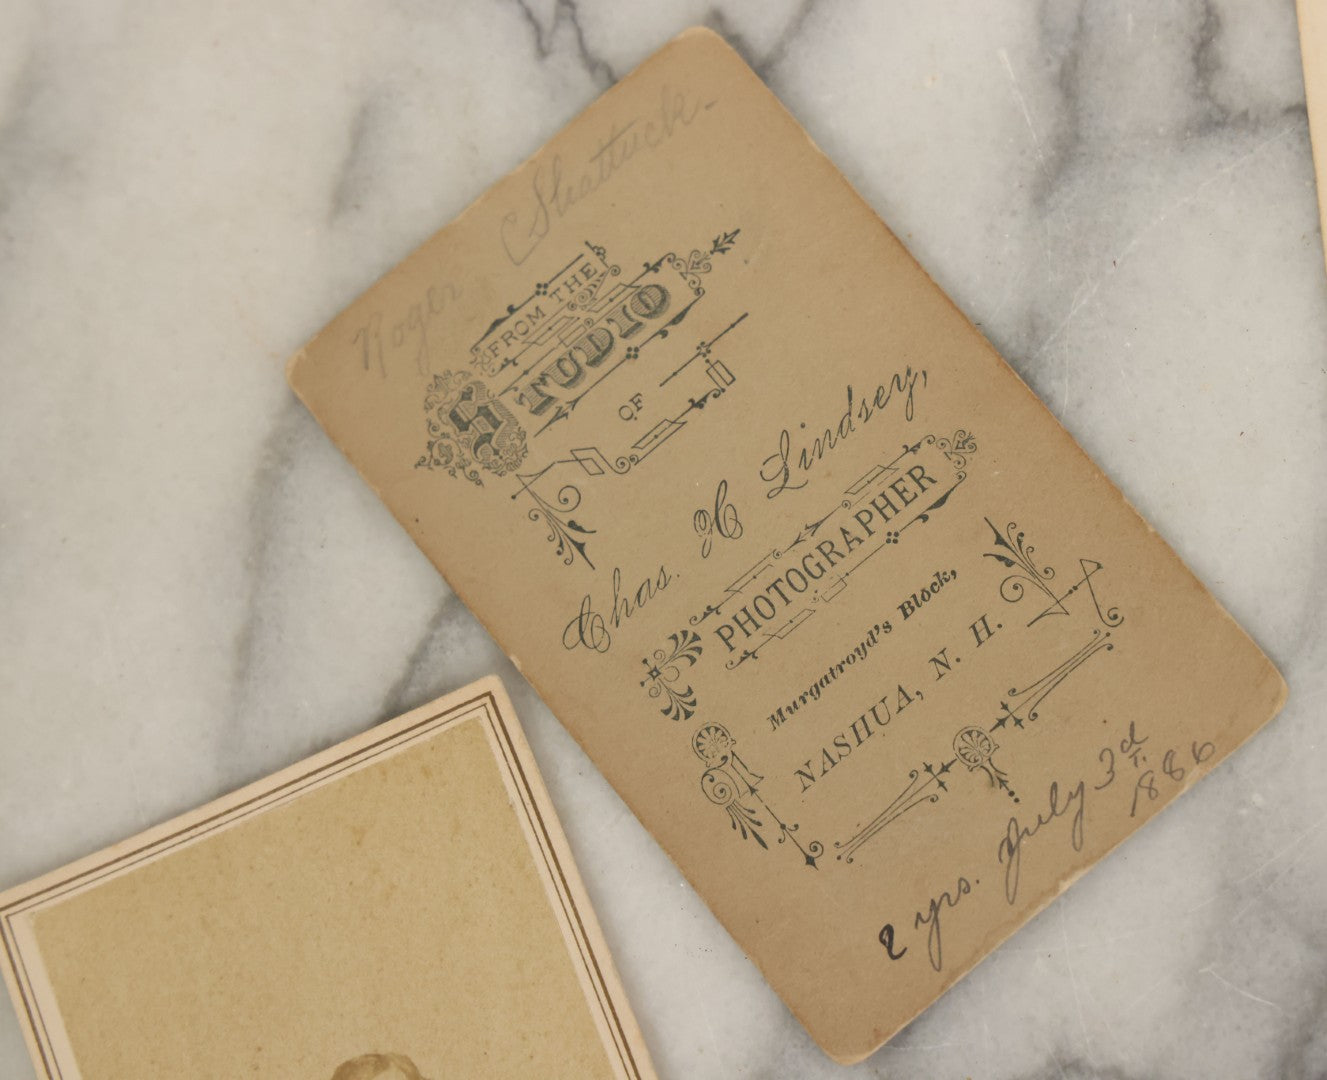 Roger C Shattuck-
FROM THE
STUDIO
OF
Chas. H Lindsey,
PHOTOGRAPHER
Murgatroyd's Block,
NASHUA, N. H.
2 yrs. July 3d.
1886